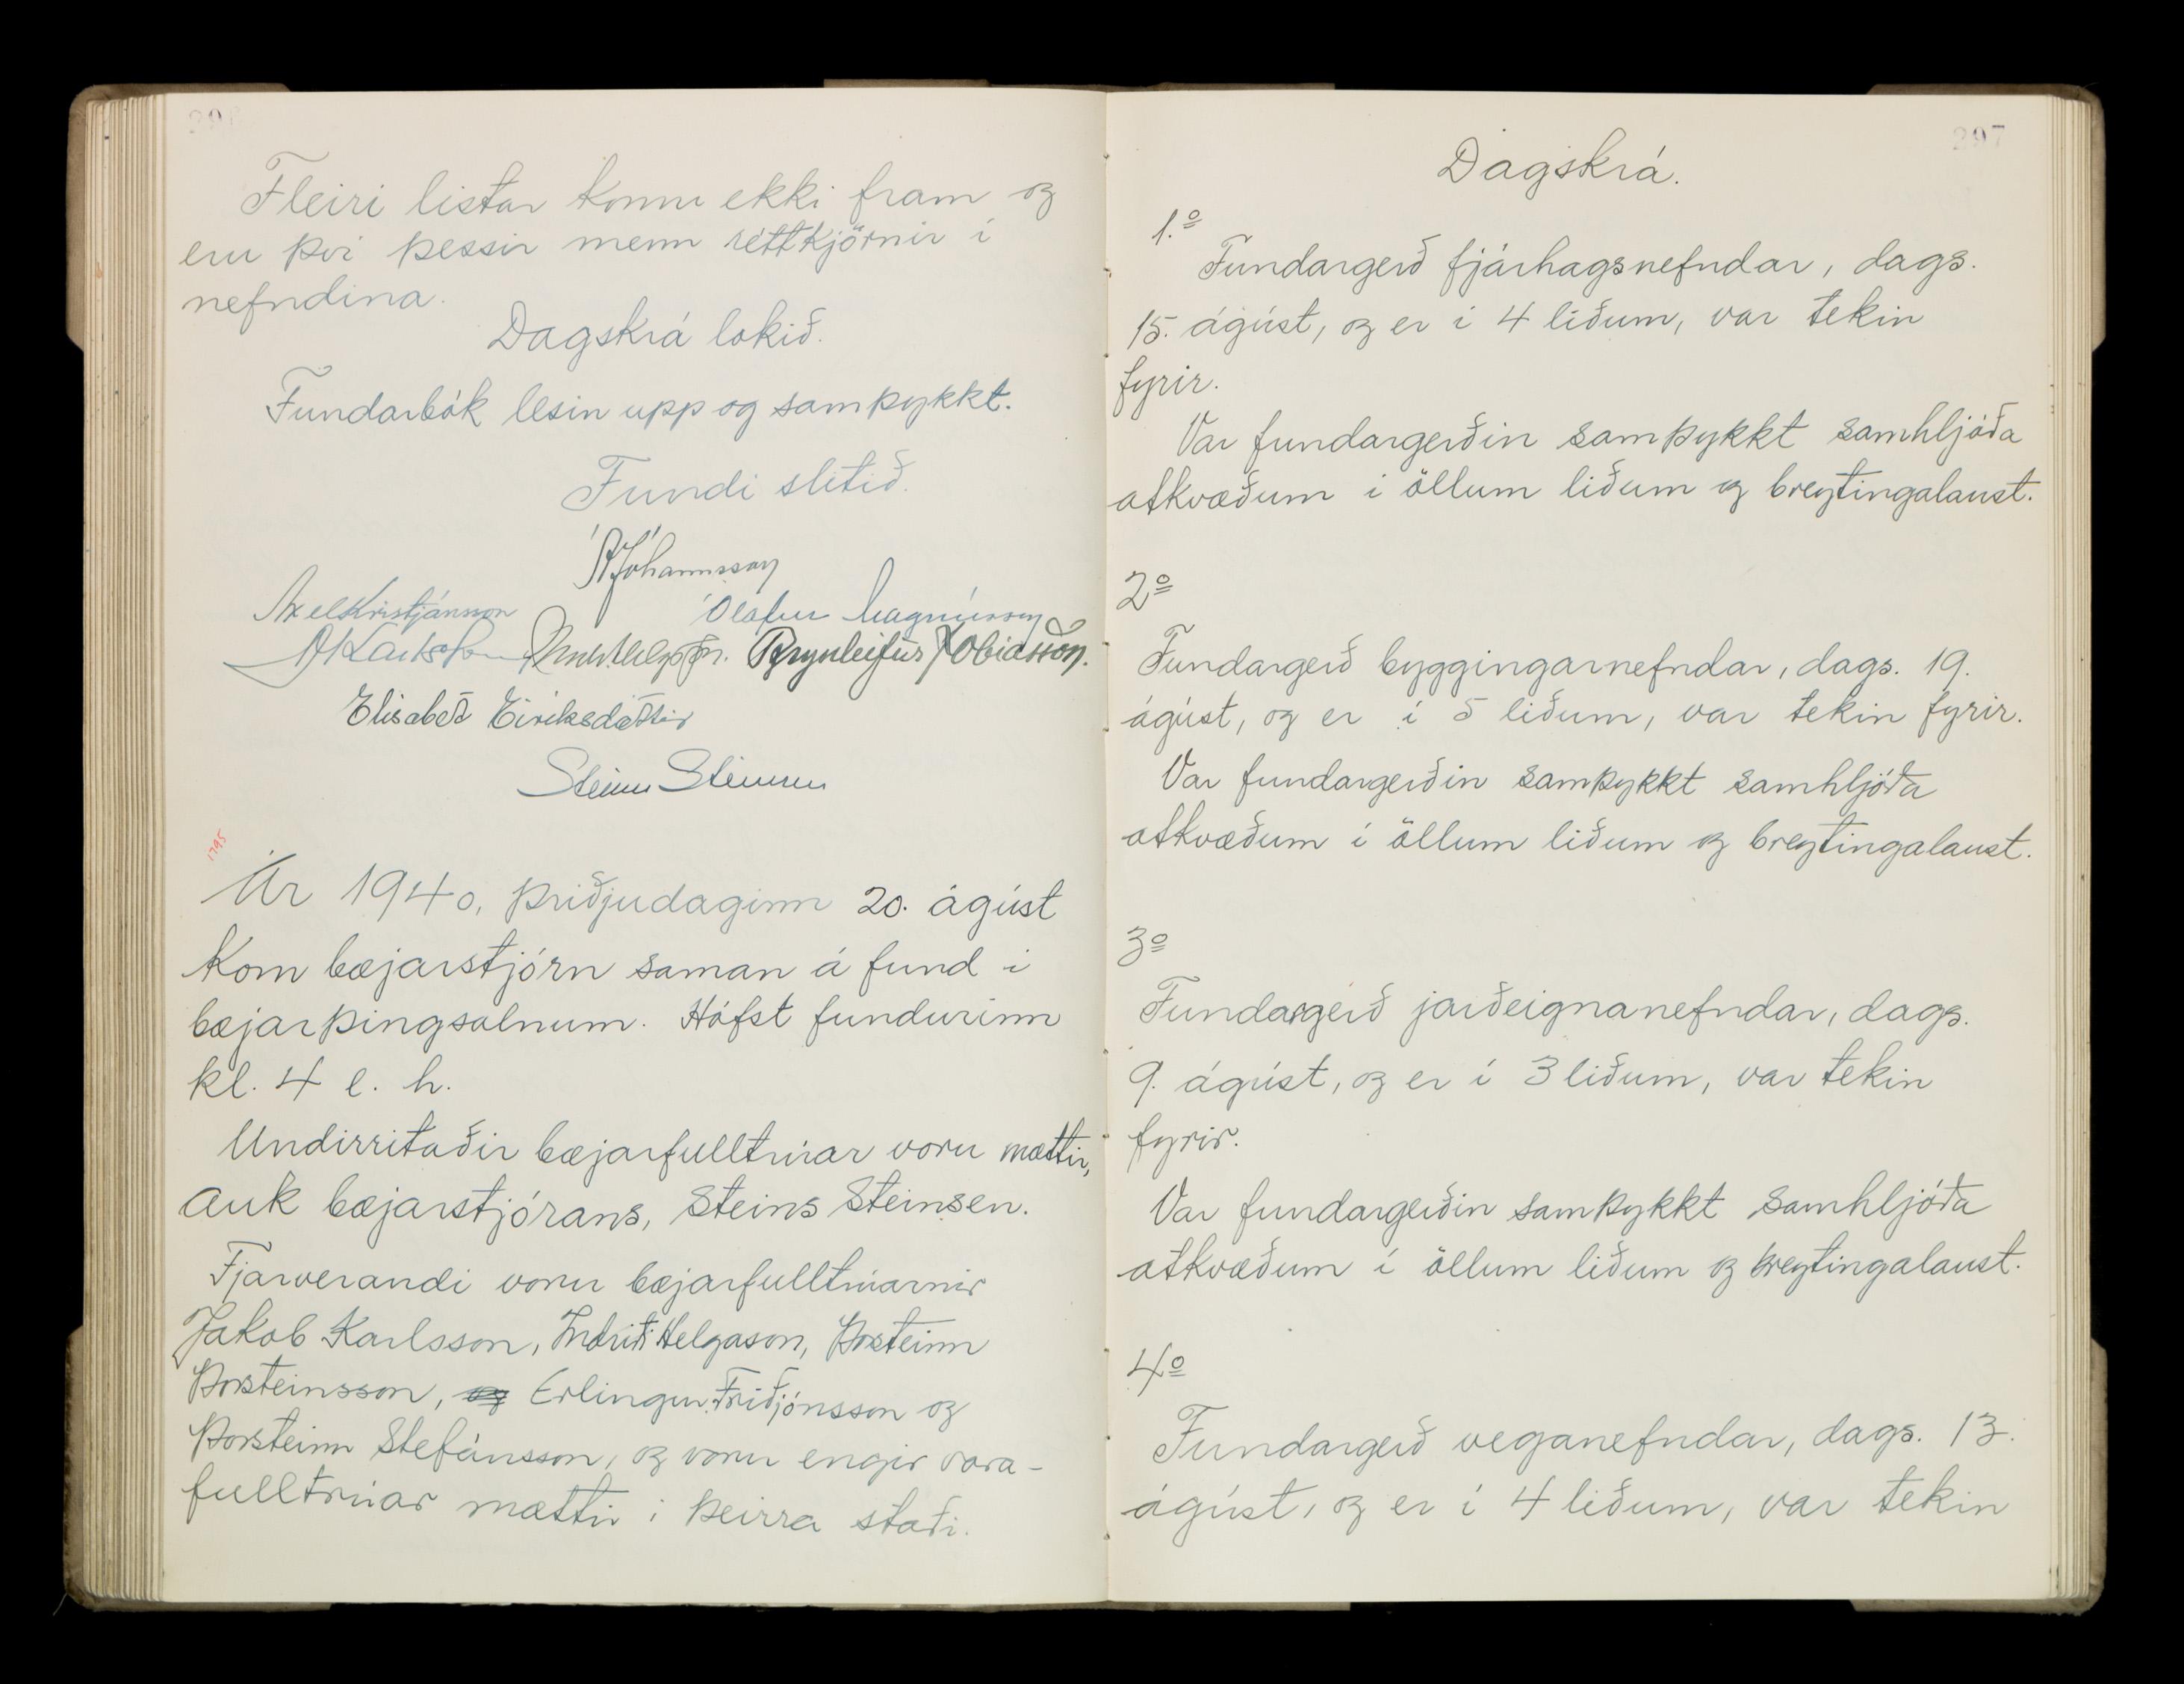 296
Fleiri listar komu ekki fram og
eru því þessir menn réttkjörnir í
nefndina.
Dagskrá lokið.
Fundarbók lesin upp og samþykkt.
Fundi slitið.
Á Jóhannsson
Axel Kristjánsson Ólafur Magnússon
Brynleifur Tobiasson.
Elísabet Eiríksdóttir
Steinn Steinsen
1795
Ár 1940, þriðjudaginn 20. ágúst
kom bæjarstjórn saman á fund í
bæjarþingsalnum. Hófst fundurinn
kl. 4 e. h.
Undirritaðir bæjarfulltrúar voru mættir,
auk bæjarstjórans, Steins Steinsen.
Fjarverandi voru bæjarfulltrúarnir
Jakob Karlsson, Indriði Helgason, Þorsteinn
Þorsteinsson, og Erlingur Friðjónsson og
Þorsteinn Stefánsson, og voru engir vara-
fulltrúar mættir í þeirra staði.
297
Dagskrá.
1.º
Fundargerð fjárhagsnefndar, dags.
15. ágúst, og er í 4 liðum, var tekin
fyrir.
Var fundargerðin samþykkt samhljóða
atkvæðum í öllum liðum og breytingalaust.
2º
Fundargerð byggingarnefndar, dags. 19.
ágúst, og er í 5 liðum, var tekin fyrir.
Var fundargerðin samþykkt samhljóða
atkvæðum í öllum liðum og breytingalaust.
3º
Fundargerð jarðeignanefndar, dags.
9. ágúst, og er í 3 liðum, var tekin
fyrir.
Var fundargerðin samþykkt samhljóða
atkvæðum í öllum liðum og breytingalaust.
4º
Fundargerð veganefndar, dags. 13.
ágúst, og er í 4 liðum, var tekin